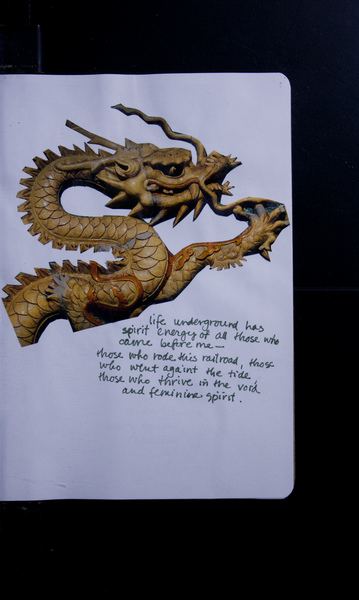 life underground has
spirit energy of all those who
came before me—
those who rode this railroad, those
who went against the tide,
those who thrive in the void
and feminine spirit.